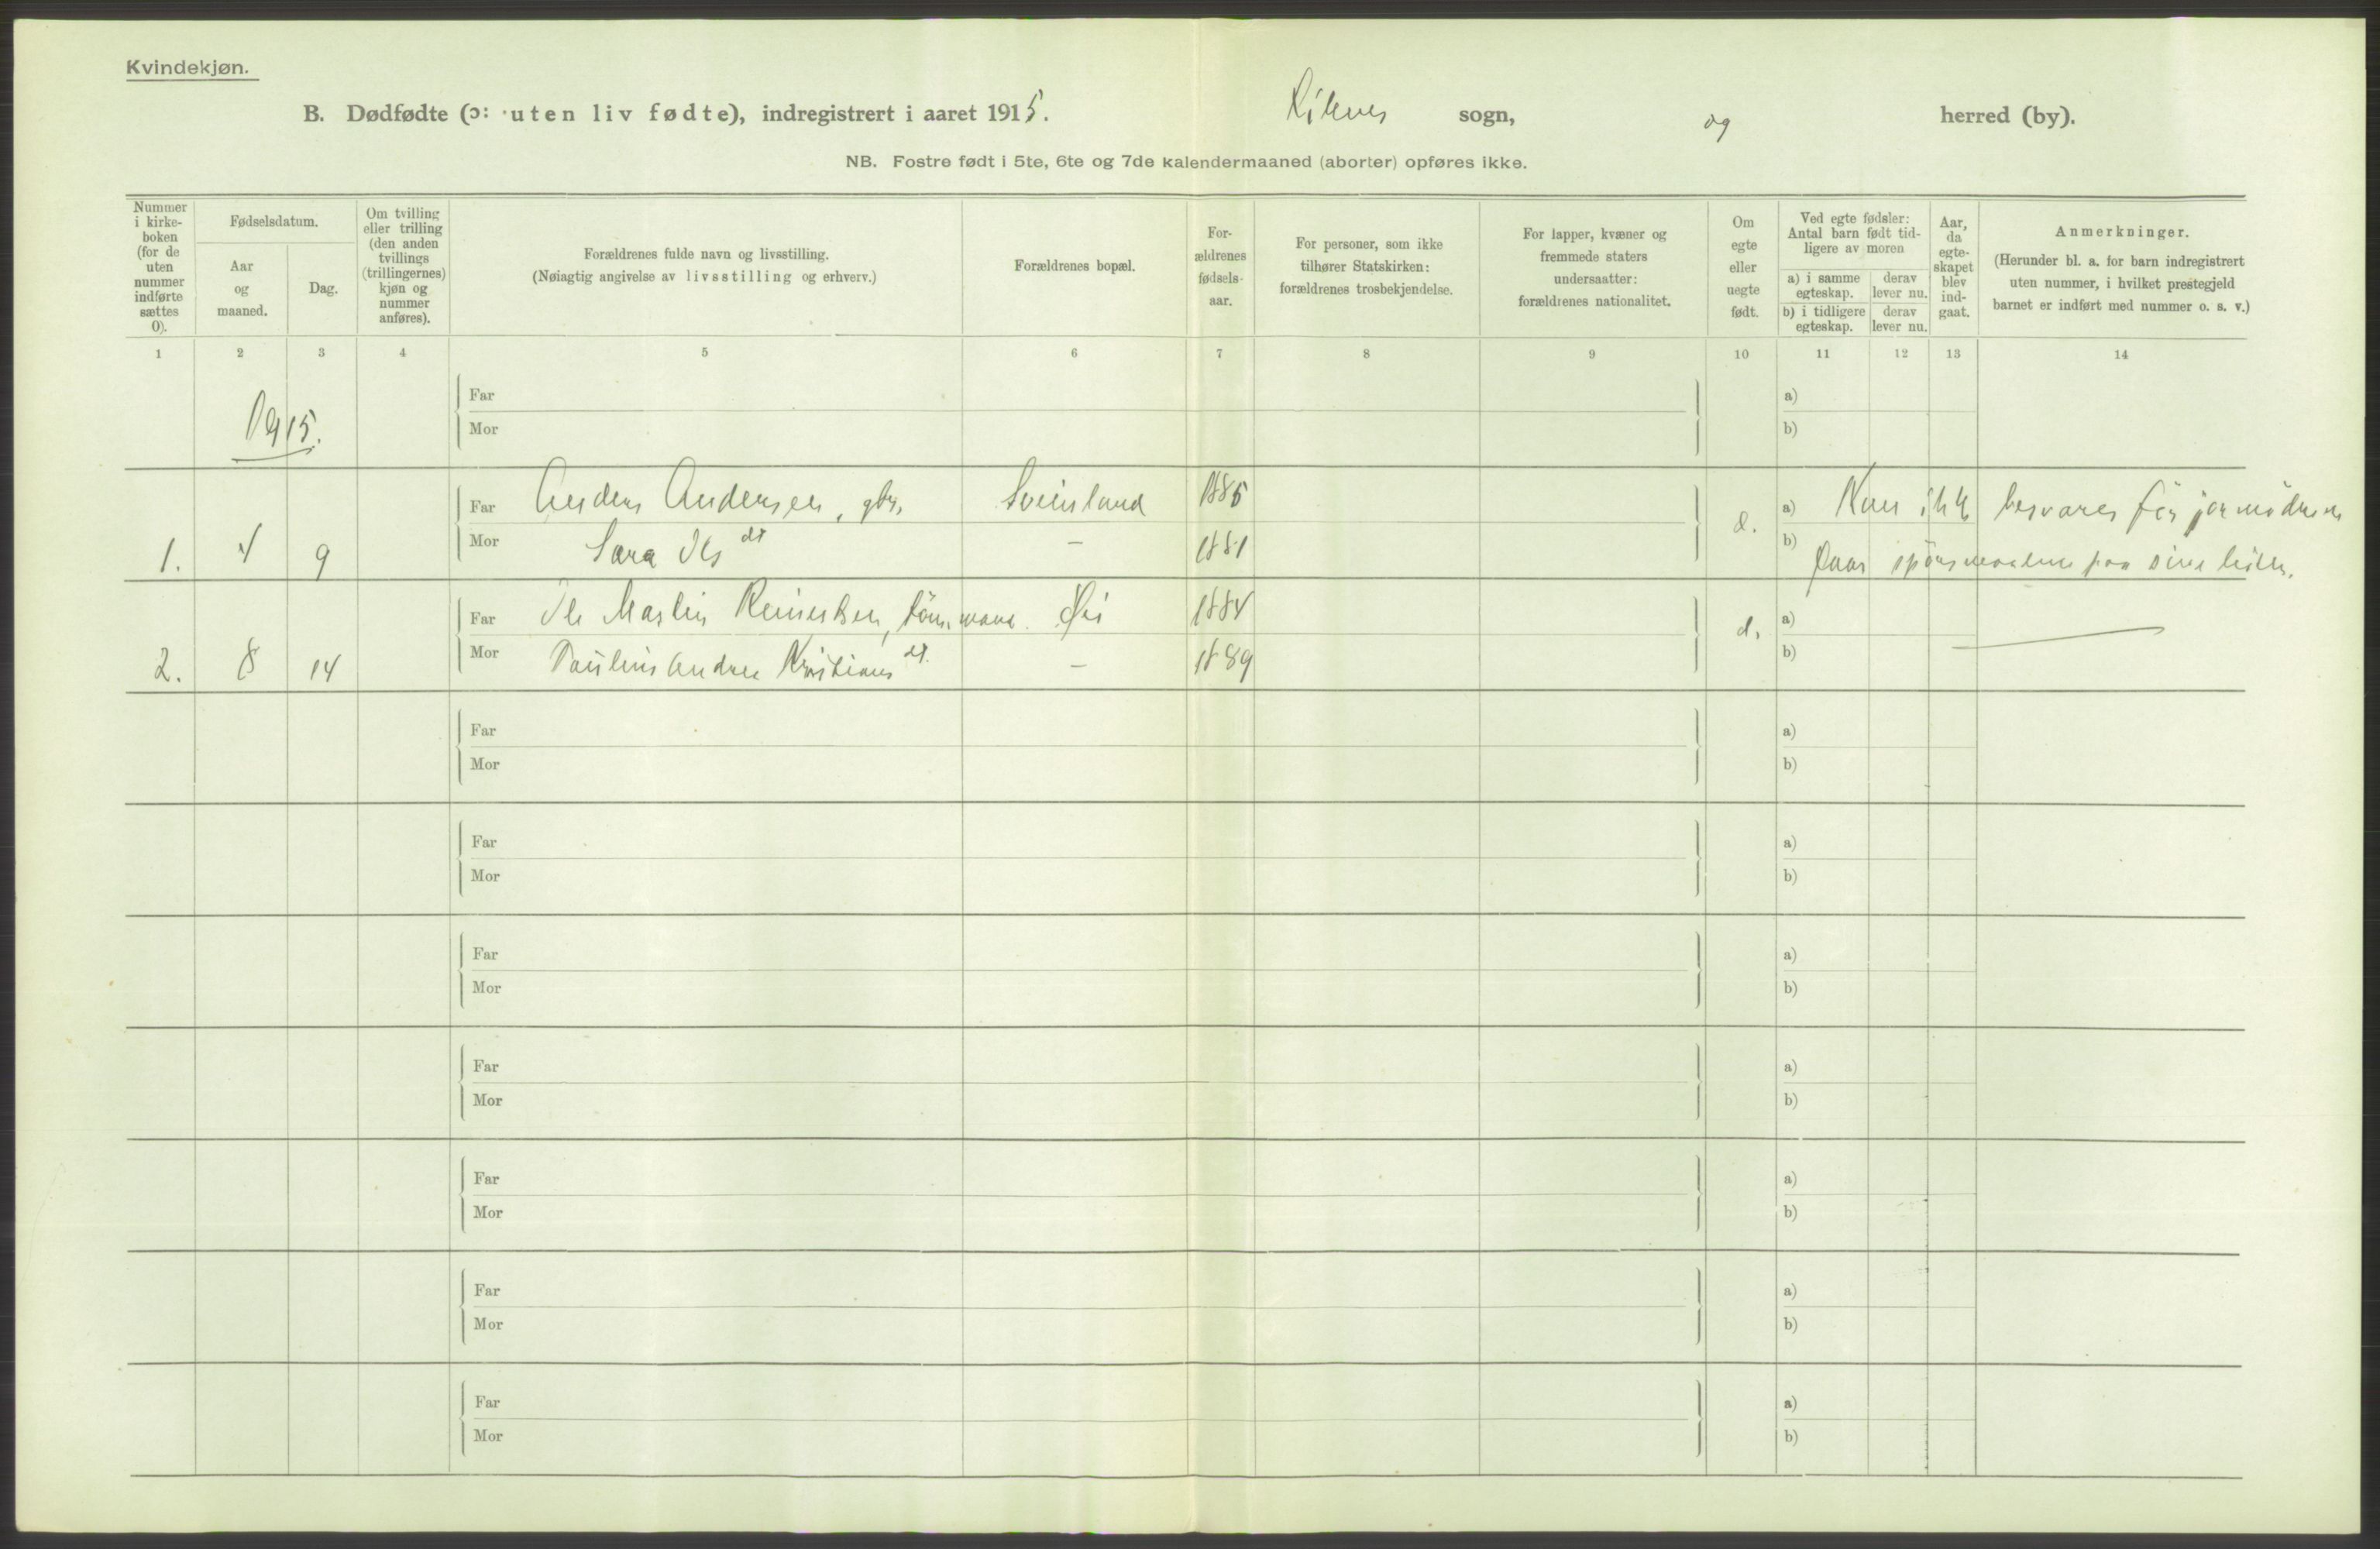 Kvindekjøn.
B. Dødfødte (ɔ: uten liv fødte), indregistrert i aaret 1915. sogn, og herred (by).
NB. Fostre født i 5te, 6te og 7de kalendermaaned (aborter) opføres ikke.
Nummer i kirke-boken (for de uten nummer indførte sættes 0).
Fødselsdatum.
Aar og maaned.
Dag.
Om tvilling eller trilling (den anden tvillings (trillingernes) kjøn og nummer anføres).
Forældrenes fulde navn og livsstilling.
(Nøiagtig angivelse av livsstilling og erhverv.)
Forældrenes bopæl.
For-ældrenes fødsels-aar.
For personer, som ikke tilhører Statskirken: forældrenes trosbekjendelse.
For lapper, kvæner og fremmede staters undersaatter: forældrenes nationalitet.
Om egte eller uegte født.
Ved egte fødsler: Antal barn født tid-ligere av moren
a) i samme egteskap. derav lever nu.
b) i tidligere egteskap. derav lever nu.
Aar, da egte-skapet blev ind-gaat.
Anmerkninger.
(Herunder bl. a. for barn indregistrert uten nummer, i hvilket prestegjeld barnet er indført med nummer o. s. v.)
1 2 3 4 5 6 7 8 9 10 11 12 13 14
1915.
Far a)
Mor b)
Far Anders Andersen, gbr. Sveinsland 1885 a) Kan ikke besvares før jormødrene
1. 4 9 Mor Sara Ols dt - 1881 b) faar spørsmaalene paa sine lister.
Far Ole Martin Reinertsen, tømmermand. Øi 1884 d. a)
2. 8 14 Mor Pauline Andrea Kristians dt. - 1889 b)
Far a)
Mor b)
Far a)
Mor b)
Far a)
Mor b)
Far a)
Mor b)
Far a)
Mor b)
Far a)
Mor b)
Far a)
Mor b)